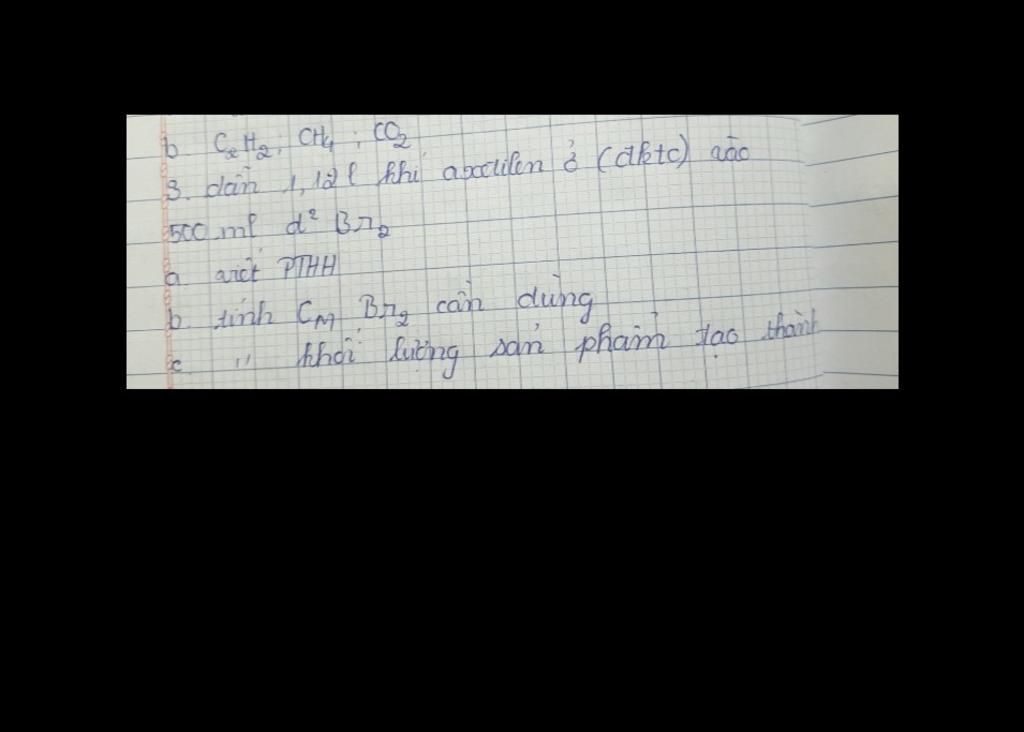 b. C₂H₂ ; CH₄ ; CO₂
3. dẫn 1,12 l khí axetilen ở (đktc) vào
500 ml d² Br₂
a viết PTHH
b. tính CM Br₂ cần dùng
c " khối lượng sản phẩm tạo thành